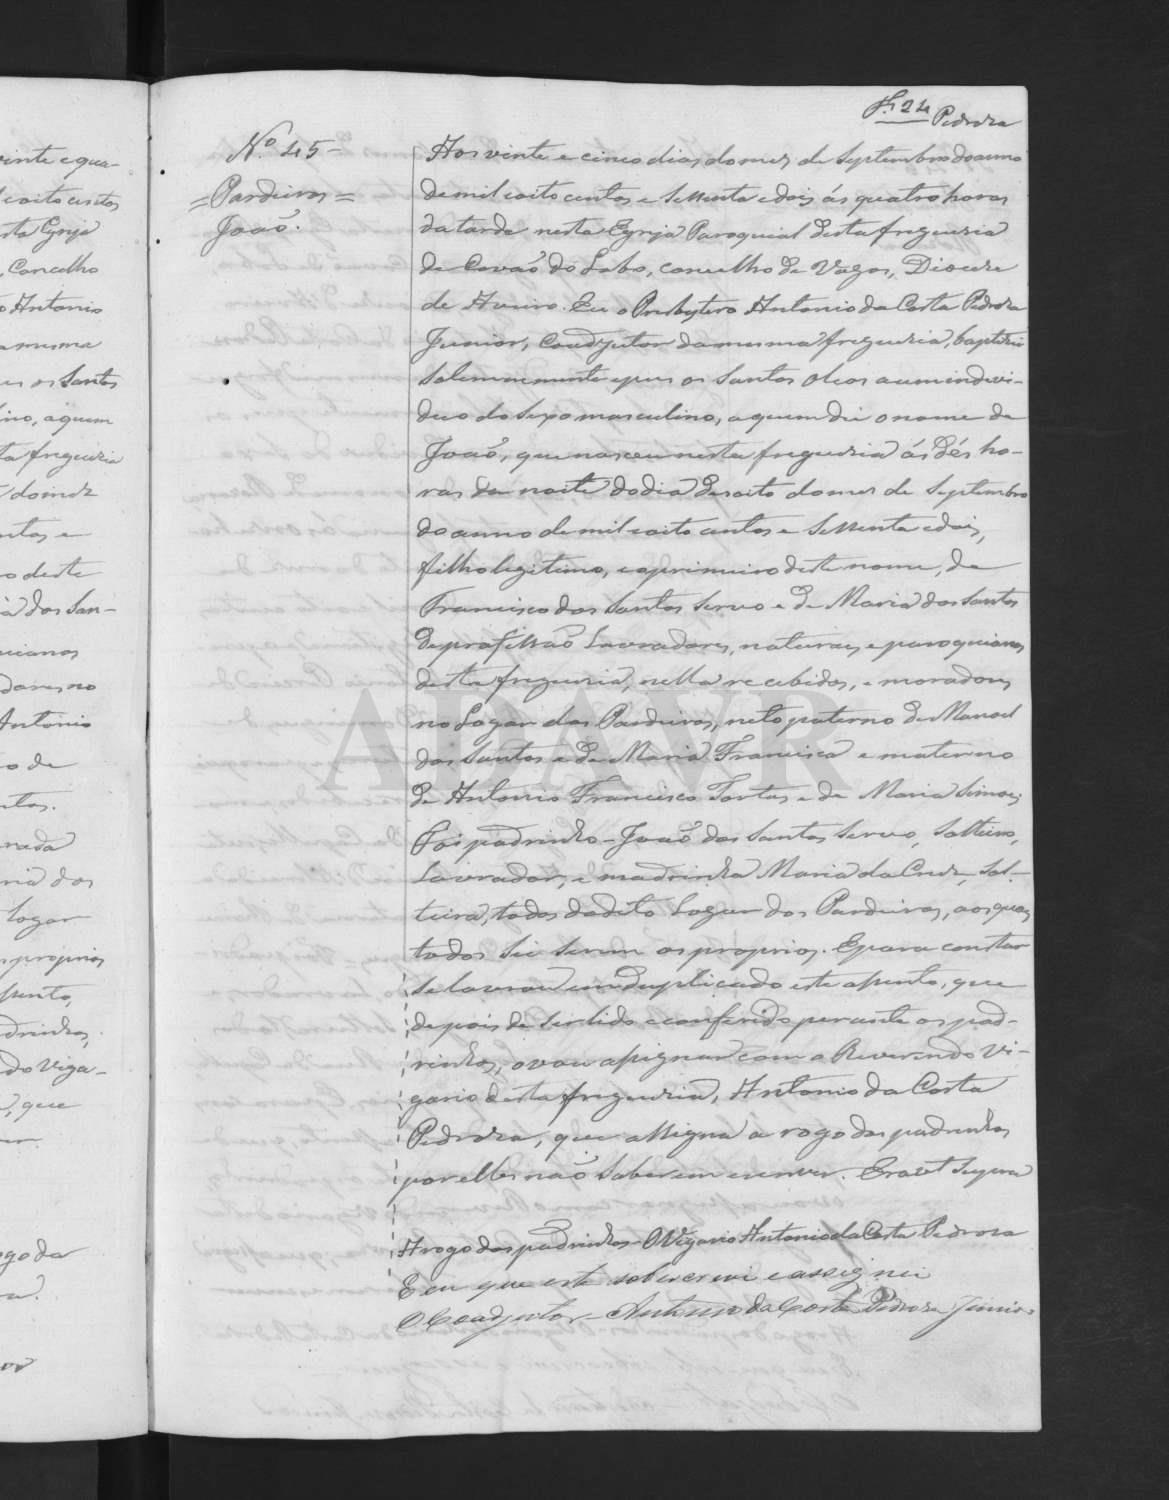 Fl. 24 Pedroza
Nº 45 =
= Pardeiros =
João.
Aos vinte e cinco dias do mez de Septembro do anno
de mil e oito centos e sessenta e dois ás quatro horas
da tarde nesta Egreja Paroquial desta freguezia
de Covão do Lobo, concelho de Vagos, Diocese
de Aveiro. Eu o Presbytero Antonio da Costa Pedroza
Junior, Coadjutor da mesma freguezia, baptizei
solemnemente e pus os Santos Oleos a um indevi-
duo do sexo masculino, a quem dei o nome de
João, que nasceu nesta freguezia ás dés ho-
ras da noite do dia desoito do mez de Septembro
do anno de mil e oito centos e sessenta e dois,
filho legitimo, e o primeiro deste nome, de
Francisco dos Santos Servo e de Maria dos Santos
de profissão Lavradores, naturaes e paroquianos
desta freguezia, nella recebidos, e moradores
no Logar dos Pardeiros, neto paterno de Manoel
dos Santos e de Maria Francisca e materno
de Antonio Francisco Tortas e de Maria Simões
Foi padrinho - João dos Santos Servo, Solteiro,
Lavrador, e madrinha Maria da Cruz, Sol-
teira, todos do dito Logar dos Pardeiros, aos quaes
todos sei serem os proprios. E para constar
se lavrou em duplicado este assento, que
depois de ser lido e conferido perante os pad-
rinhos, o vou assignar com o Reverendo Vi-
gario desta freguezia, Antonio da Costa
Pedroza, que assigna a rogo dos padrinhos
por elles não saberem escrever. Era et supra
A rogo dos padrinhos - O Vigario Antonio da Costa Pedroza
E eu que este sobescrevi e assignei
O Coadjutor - Antonio da Costa Pedroza Junior
ADAVR
vinte e qua-
e oito centos
sta Egreja
, Concelho
o Antonio
a mesma
us os Santos
lino, a quem
ta freguezia
do mez
ntos e
o deste
a dos San-
uianos
dores no
Antonio
o de
ntos.
ria dos
logar
s proprios
ssento,
drinhos,
do Viga-
, que
ogo da